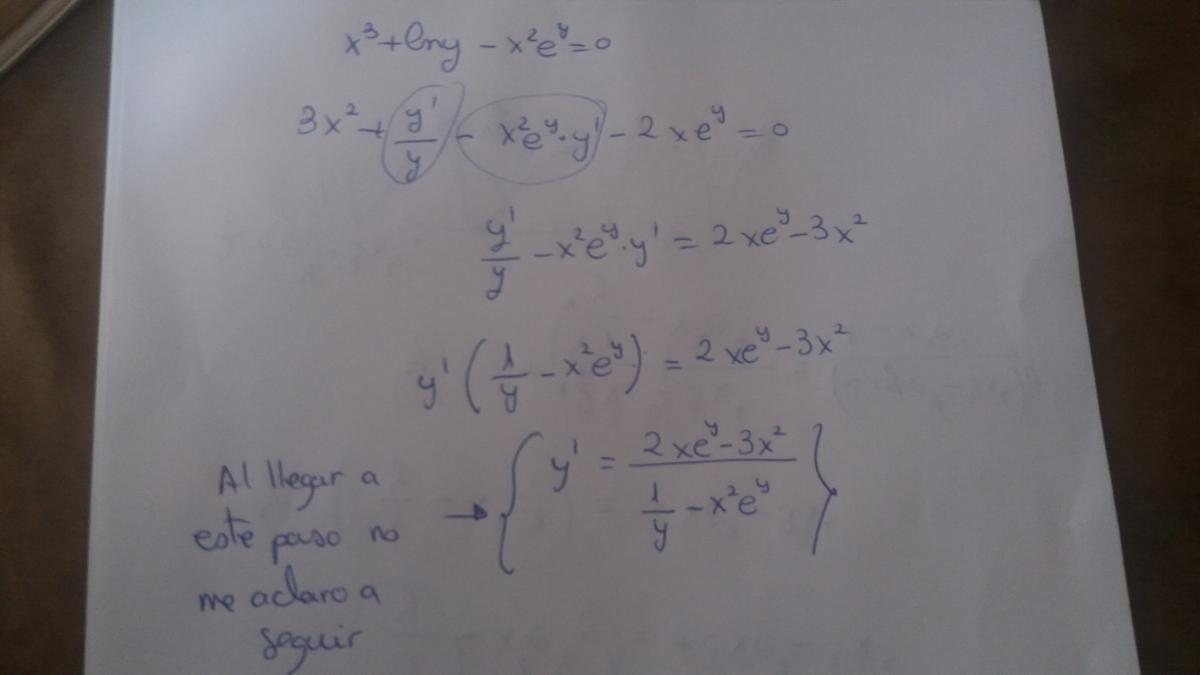 x³+lny - x²e^y=0
3x²+ y'/y - x²e^y·y' - 2xe^y = 0
y'/y - x²e^y·y' = 2xe^y - 3x²
y' (1/y - x²e^y) = 2xe^y - 3x²
Al llegar a
este paso no
me aclaro a
seguir
→ { y' = (2xe^y - 3x²)/(1/y - x²e^y) }